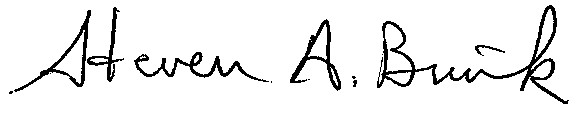 Steven A. Brink